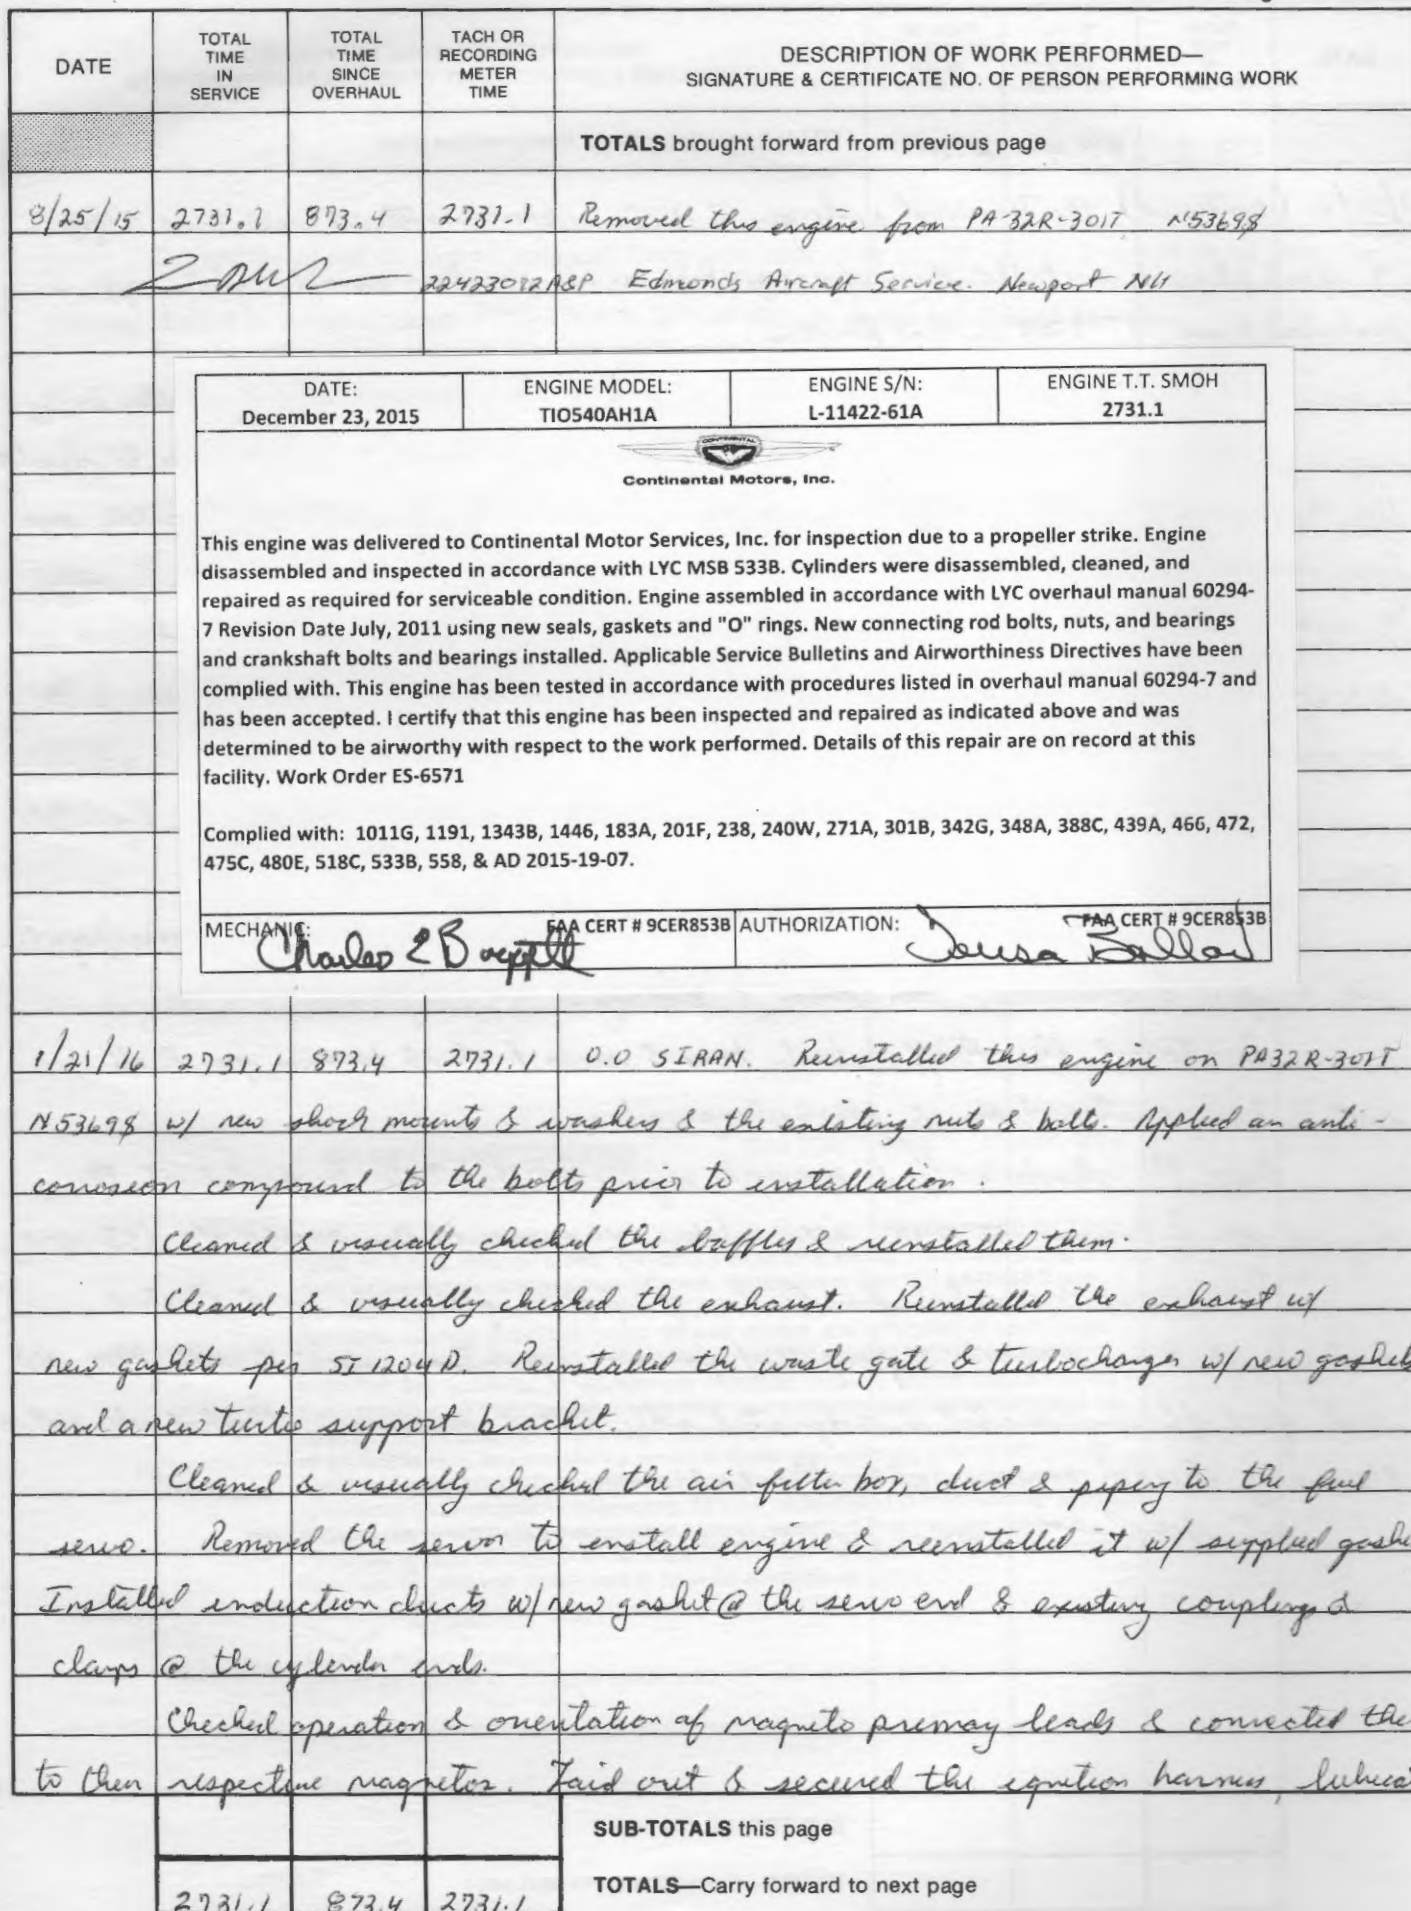 DATE
TOTAL TIME IN SERVICE
TOTAL TIME SINCE OVERHAUL
TACH OR RECORDING METER TIME
DESCRIPTION OF WORK PERFORMED—
SIGNATURE & CERTIFICATE NO. OF PERSON PERFORMING WORK
TOTALS brought forward from previous page
8/25/15 2731.1 873.4 2731.1 Removed this engine from PA-32R-301T N53698
22423032 A&P Edmonds Aircraft Service. Newport NH
DATE: ENGINE MODEL: ENGINE S/N: ENGINE T.T. SMOH
December 23, 2015 TIO540AH1A L-11422-61A 2731.1
CONTINENTAL
Continental Motors, Inc.
This engine was delivered to Continental Motor Services, Inc. for inspection due to a propeller strike. Engine
disassembled and inspected in accordance with LYC MSB 533B. Cylinders were disassembled, cleaned, and
repaired as required for serviceable condition. Engine assembled in accordance with LYC overhaul manual 60294-
7 Revision Date July, 2011 using new seals, gaskets and "O" rings. New connecting rod bolts, nuts, and bearings
and crankshaft bolts and bearings installed. Applicable Service Bulletins and Airworthiness Directives have been
complied with. This engine has been tested in accordance with procedures listed in overhaul manual 60294-7 and
has been accepted. I certify that this engine has been inspected and repaired as indicated above and was
determined to be airworthy with respect to the work performed. Details of this repair are on record at this
facility. Work Order ES-6571
Complied with: 1011G, 1191, 1343B, 1446, 183A, 201F, 238, 240W, 271A, 301B, 342G, 348A, 388C, 439A, 466, 472,
475C, 480E, 518C, 533B, 558, & AD 2015-19-07.
MECHANIC: FAA CERT # 9CER853B AUTHORIZATION: FAA CERT # 9CER853B
Charles E
1/21/16 2731.1 873.4 2731.1 0.0 SIRAN. Reinstalled this engine on PA32R-301T
N53698 w/ new shock mounts & washers & the existing nuts & bolts. Applied an anti-
corrosion compound to the bolts prior to installation.
Cleaned & visually checked the baffles & reinstalled them.
Cleaned & visually checked the exhaust. Reinstalled the exhaust w/
new gaskets per SI 1204D. Reinstalled the waste gate & turbocharger w/ new gaskets
and a new turbo support bracket.
Cleaned & visually checked the air filter box, duct & piping to the fuel
servo. Removed the servo to install engine & reinstalled it w/ supplied gaske
Installed induction ducts w/ new gasket @ the servo end & existing couplings &
clamps @ the cylinder ends.
Checked operation & orientation of magneto primary leads & connected the
to their respective magnetos. Laid out & secured the ignition harness, lubrica
SUB-TOTALS this page
2731.1 873.4 2731.1 TOTALS—Carry forward to next page